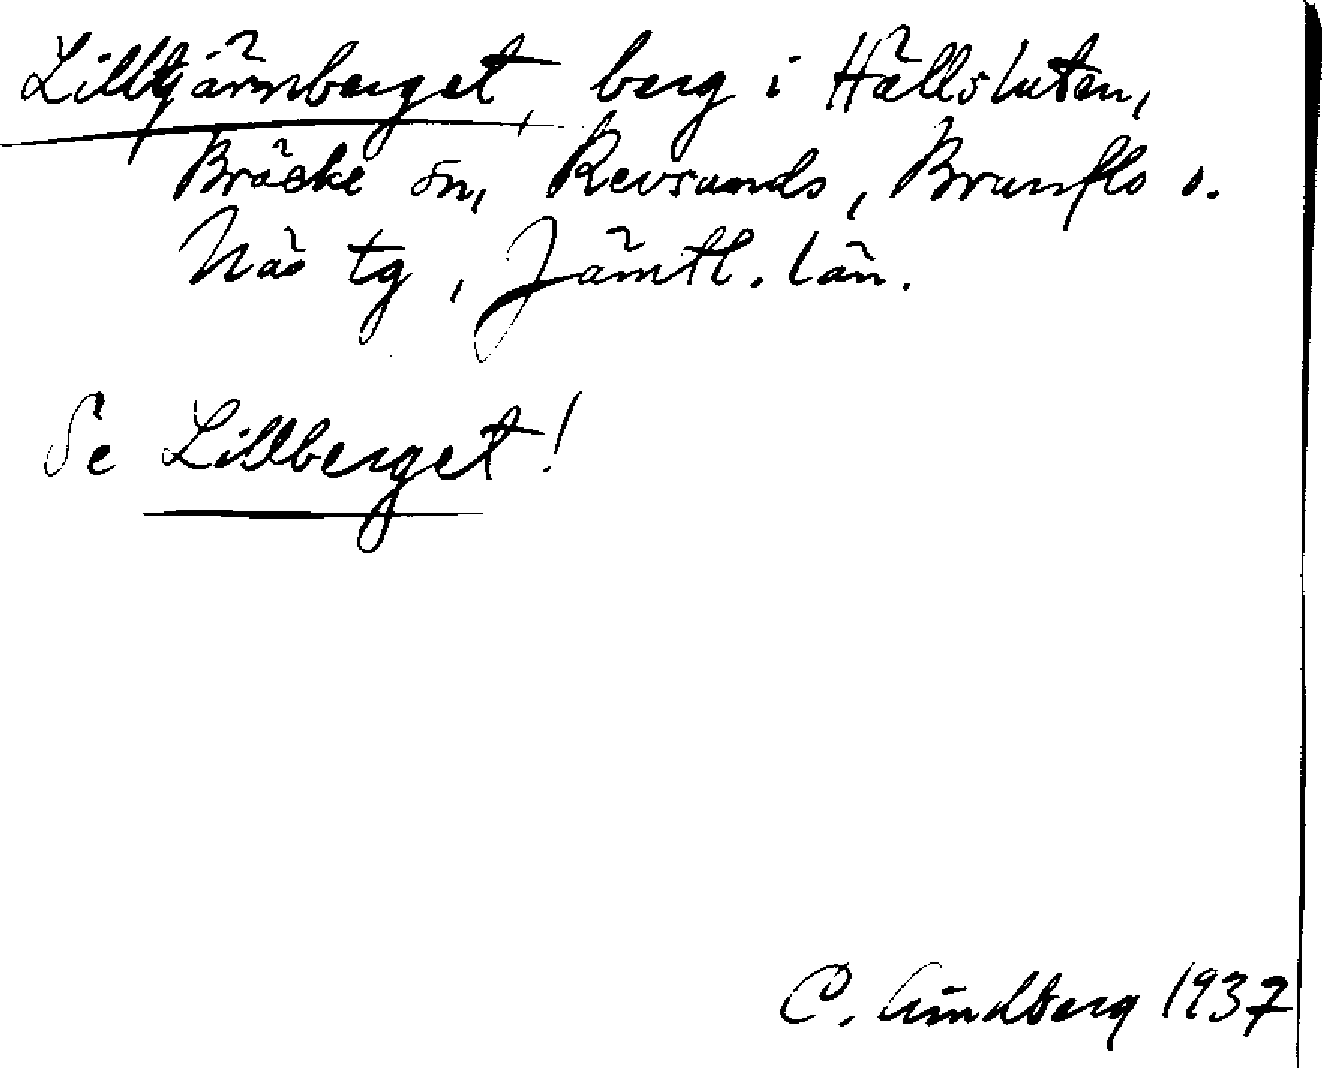 Lilltjärnberget, berg i Hällsluten,
Bräcke sn, Revsunds, Brunflo o.
Näs tg, Jämtl. län.
Se Lillberget!
C. Lindberg 1937